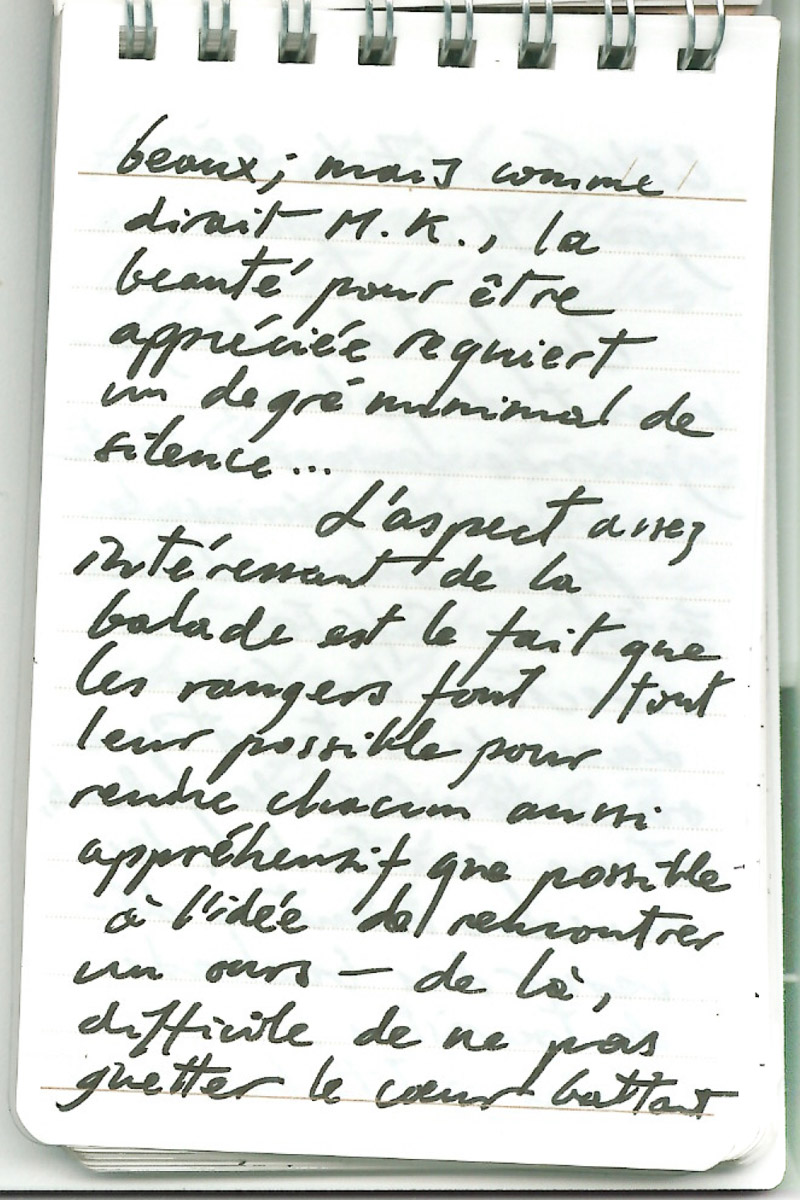 beaux ; mais comme
dirait M. K., la
beauté pour être
appréciée requiert
un degré minimal de
silence...
L'aspect assez
intéressant de la
balade est le fait que
les rangers font tout
leur possible pour
rendre chacun aussi
appréhensif que possible
à l'idée de rencontrer
un ours — de là,
difficile de ne pas
guetter le cœur battant